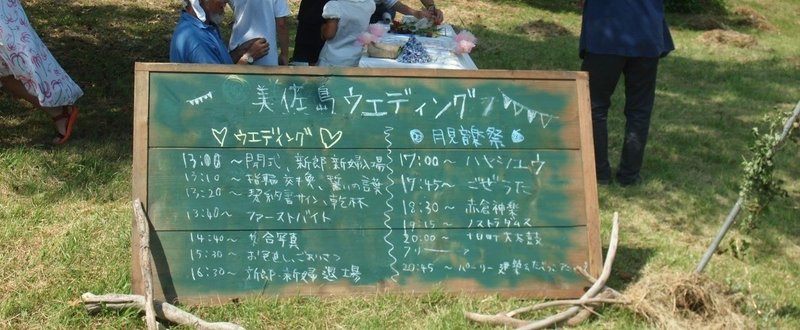 美佐島ウエディング
♡ウエディング♡
13:00～開式、新郎新婦入場
13:10～指輪交換、誓いの言葉
13:20～契約書サイン、乾杯
13:40～ファーストバイト
14:40～集合写真
15:30～お見送し、ごあいさつ
16:30～新郎・新婦退場
月見音楽祭
17:00～ハヤシユウ
17:45～ごぜうた
18:30～赤倉神楽
19:15～ノストラダムス
20:00～十日町大太鼓
フリー
20:45～